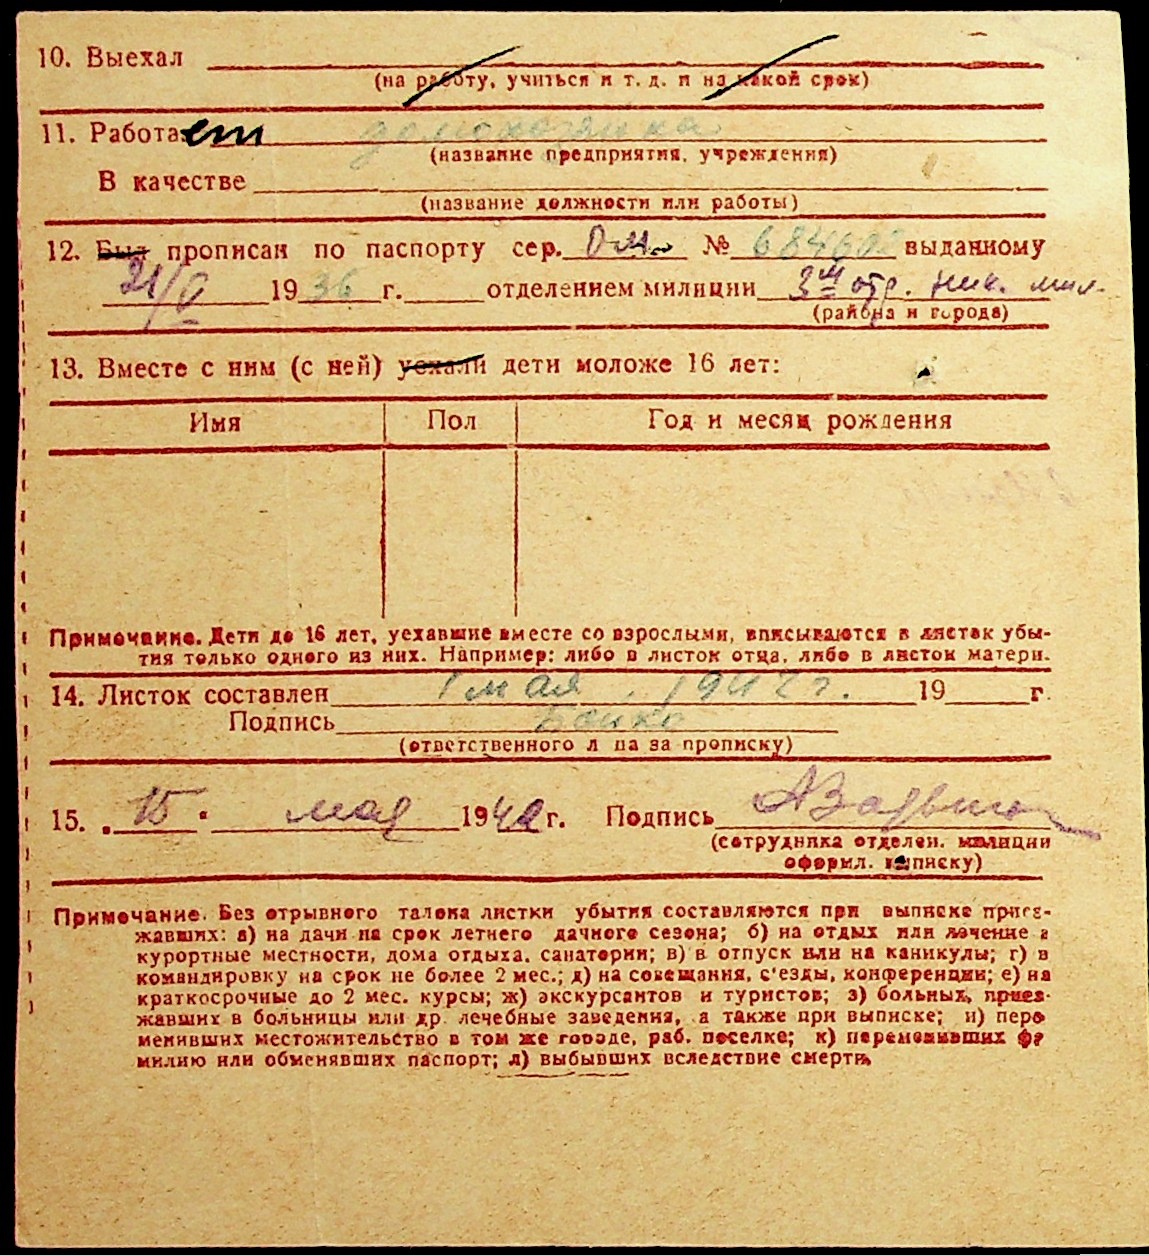 10. Выехал
(на работу, учиться и т. д. и на какой срок)
11. Работает домохозяйка
(название предприятия, учреждения)
В качестве
(название должности или работы)
12. Был прописан по паспорту сер. № выданному
21/V 1936 г. отделением милиции 3м отр. ник. мил.
(района и города)
13. Вместе с ним (с ней) уехали дети моложе 16 лет:
Имя Пол Год и месяц рождения
Примечание. Дети до 16 лет, уехавшие вместе со взрослыми, вписываются в листок убы-
тия только одного из них. Например: либо в листок отца, либо в листок матери.
14. Листок составлен 1 мая 1942 г. 19 г.
Подпись Бойко
(ответственного л ца за прописку)
15. 15 мая 1942 г. Подпись
(сотрудника отделен. милиции
оформл. выписку)
Примечание. Без отрывного талона листки убытия составляются при выписке приез-
жавших: а) на дачи на срок летнего дачного сезона; б) на отдых или лечение в
курортные местности, дома отдыха, санатории; в) в отпуск или на каникулы; г) в
командировку на срок не более 2 мес.; д) на совещания, с'езды, конференции; е) на
краткосрочные до 2 мес. курсы; ж) экскурсантов и туристов; з) больных, приез-
жавших в больницы или др. лечебные заведения, а также при выписке; и) пере
менивших местожительство в том же городе, раб. поселке; к) переменивших фа
милию или обменявших паспорт; л) выбывших вследствие смерти.